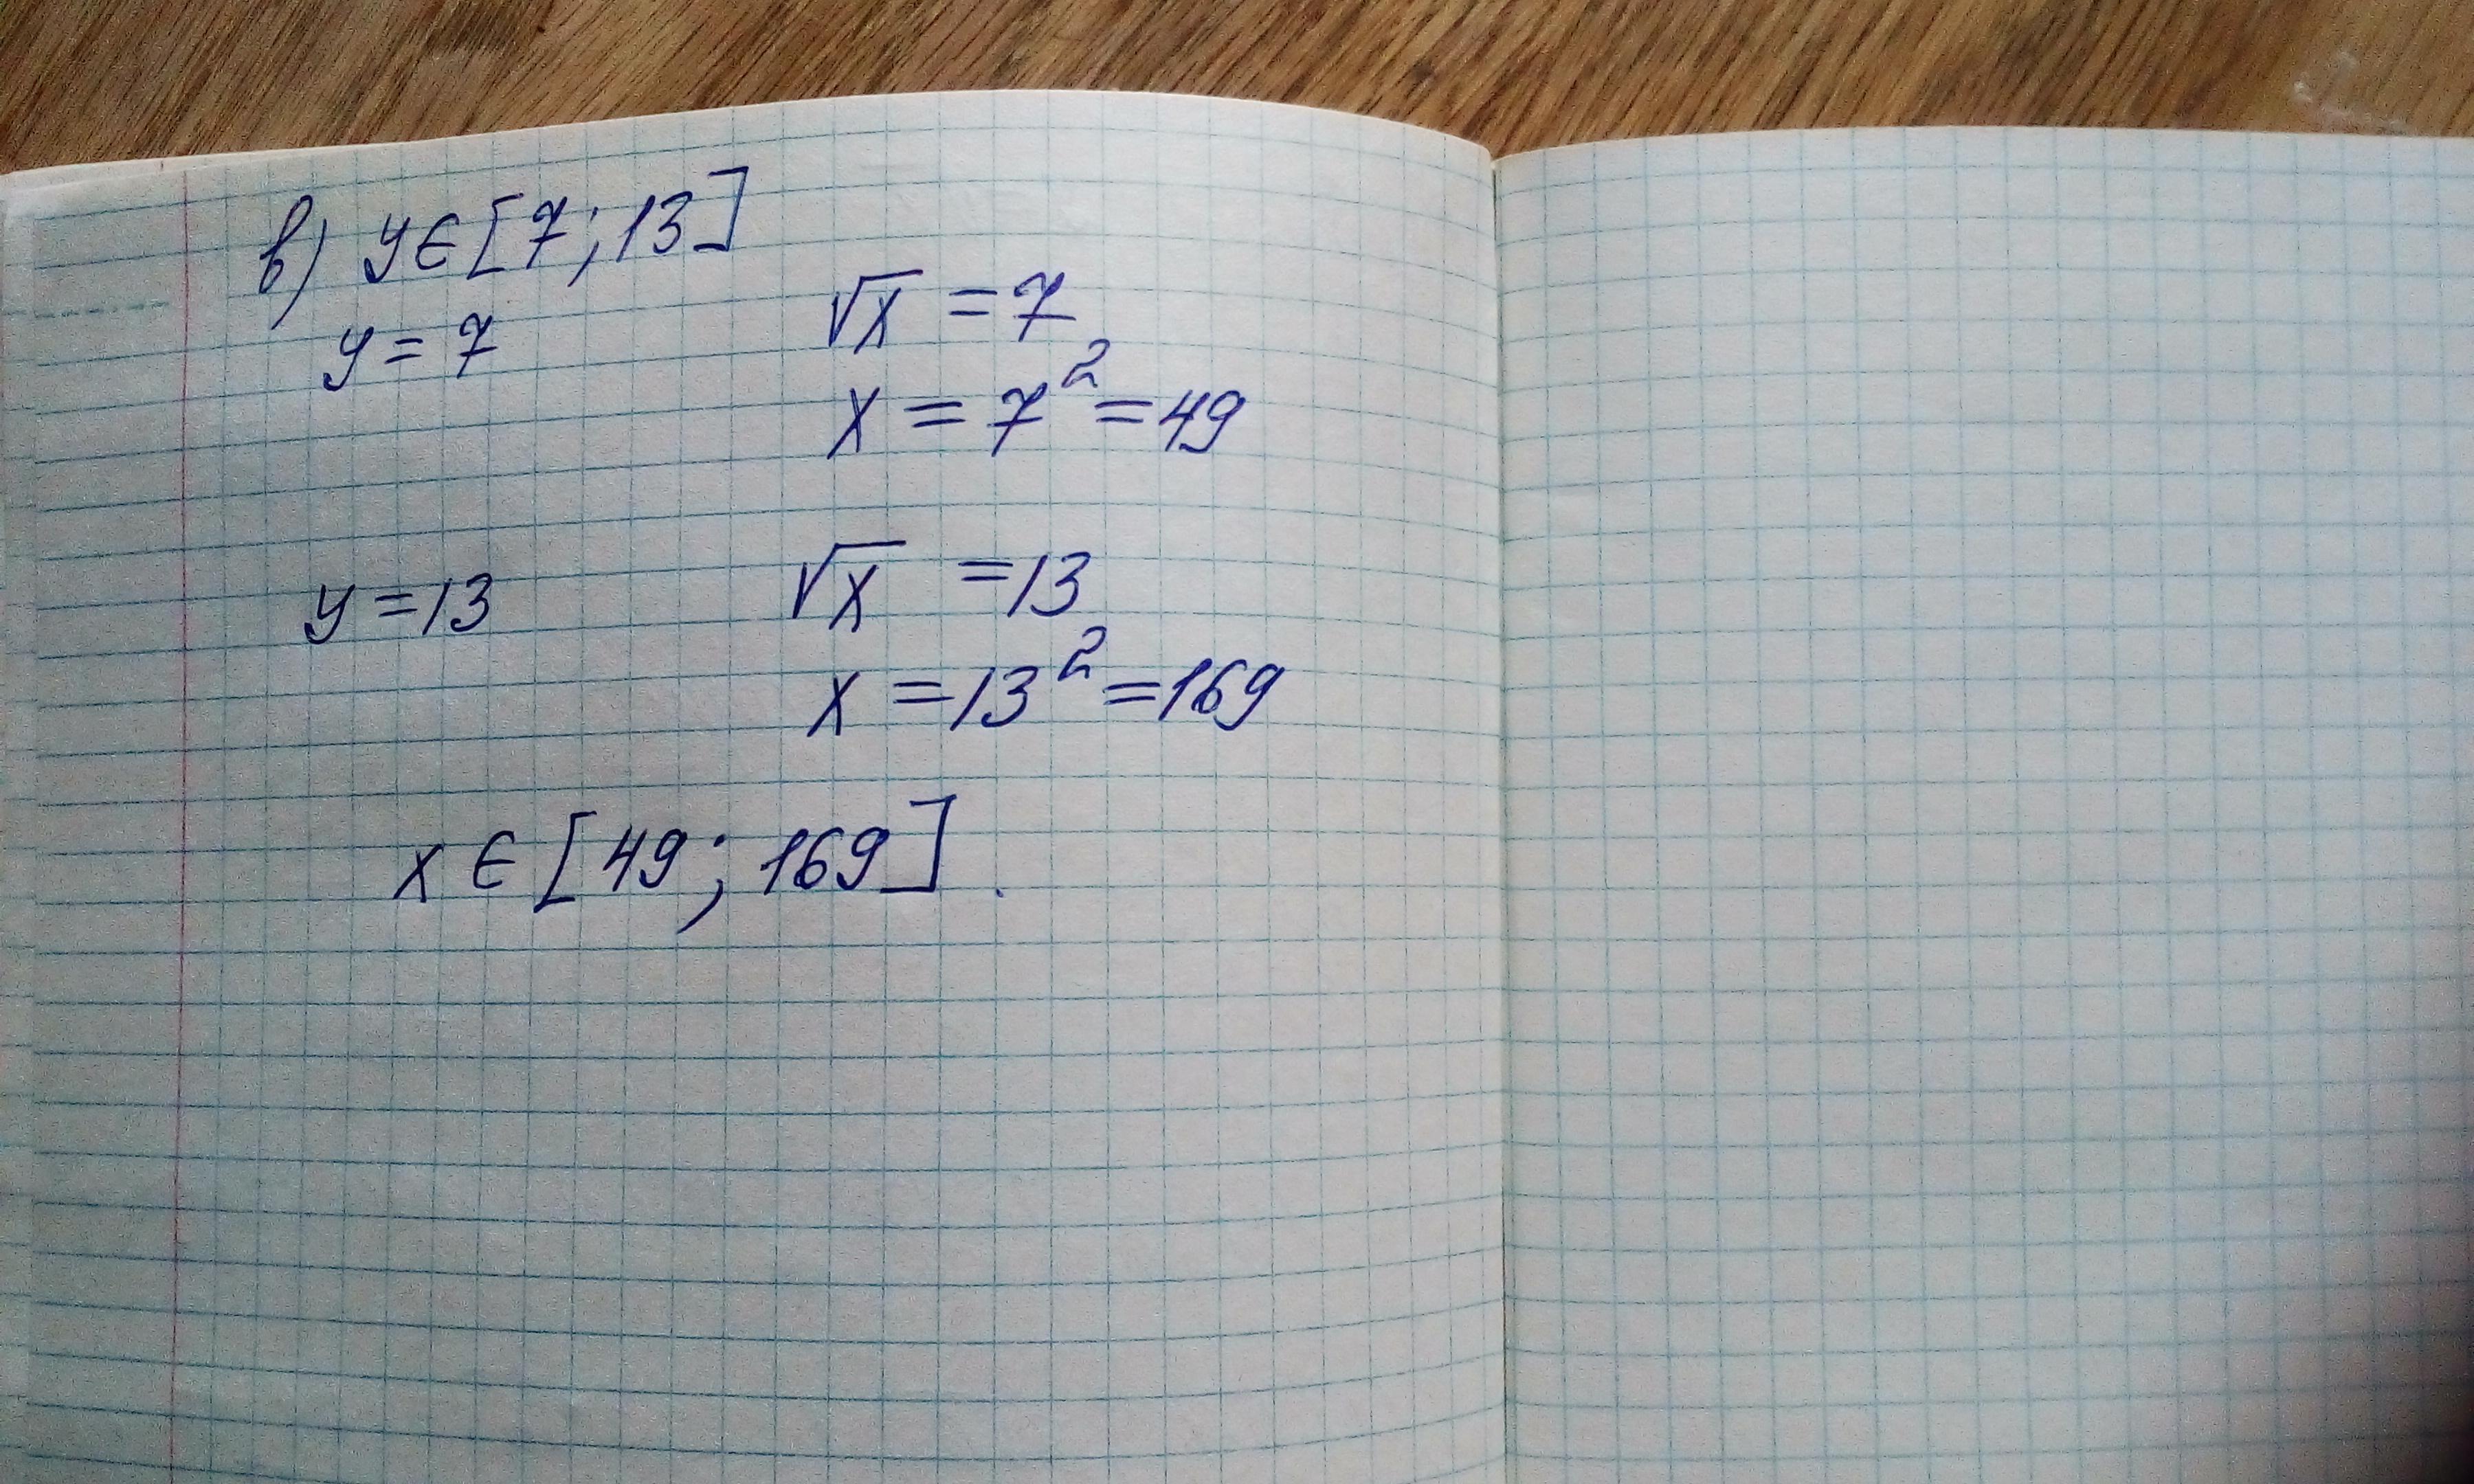 в) y ∈ [7; 13]
y = 7
√x = 7
x = 7² = 49
y = 13
√x = 13
x = 13² = 169
x ∈ [49; 169].